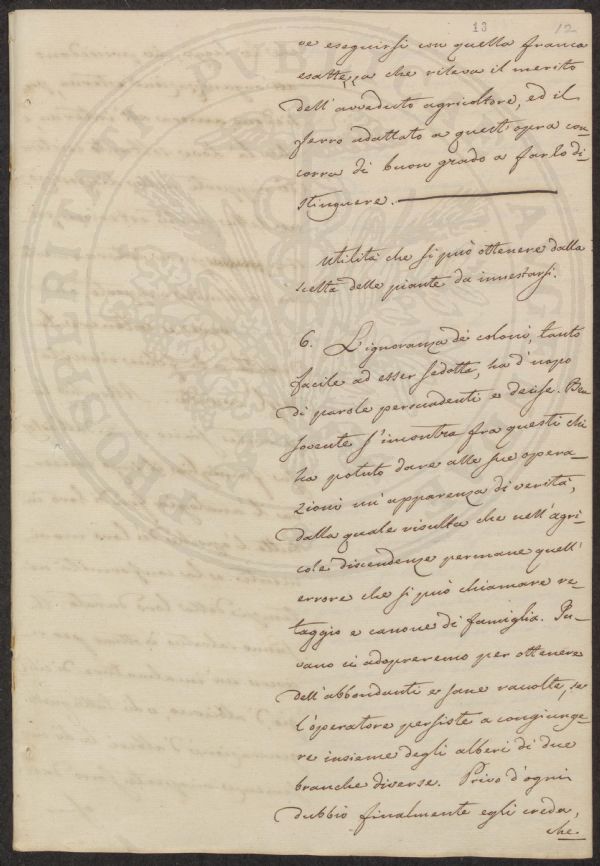 13 12
ve eseguirsi con quella franca
esattezza che rileva il merito
dell'avveduto agricoltore, ed il
ferro adattato a quest'opera con-
corra di buon grado a farlo di-
stinguere.
Utilità che si può ottenere dalla
scelta delle piante da innestarsi.
6. L'ignoranza de' coloni, tanto
facile ad esser sedotta, ha d'uopo
di parole persuadenti e decise. Ben
sovente s'incontra fra questi chi
ha potuto dare alle sue opera-
zioni un'apparenza di verità,
dalla quale risulta che nell'agri-
cole discendenze permane quell'
errore che si può chiamare re-
taggio e canone di famiglia. In-
vano ci adopreremo per ottenere
dell'abbondanti e sane raccolte, se
l'operatore persiste a congiunge-
re insieme degli alberi di due
branche diverse. Privo d'ogni
dubbio finalmente egli creda,
che
PROSPERITATI PUBLICAE